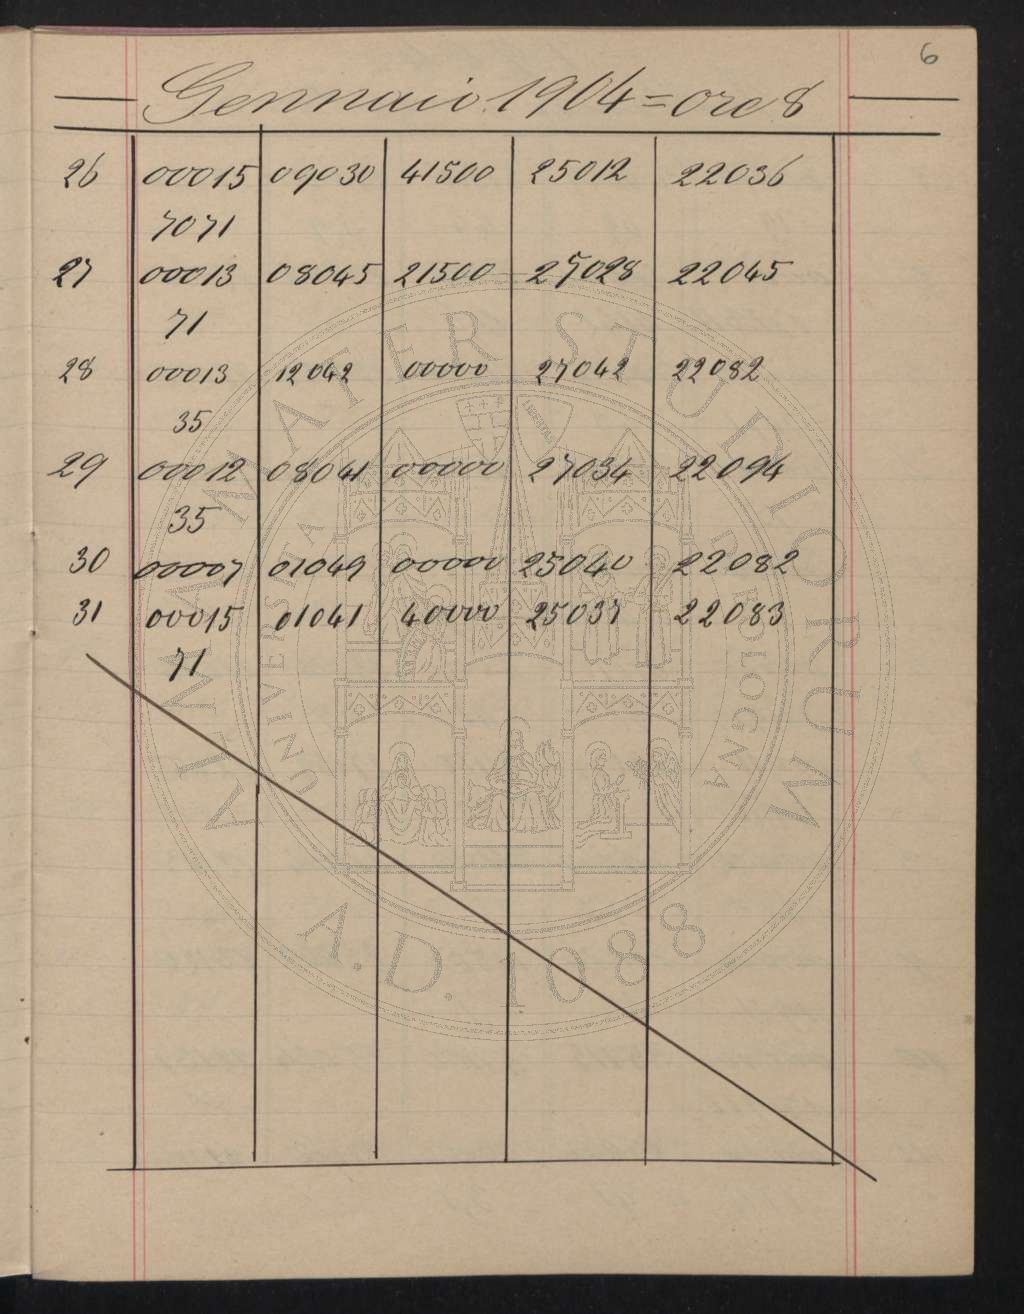 6
Gennaio 1904 = ore 8
26 00015 09030 41500 25012 22036
7071
27 00013 08045 21500 25028 22045
71
28 00013 12042 00000 27042 22082
35
29 00012 08041 00000 27034 22094
35
30 00007 01049 00000 25040 22082
31 00015 01041 40000 25037 22083
71
ALMA MATER STUDIORUM
UNIVERSITÀ DI BOLOGNA
A.D. 1088